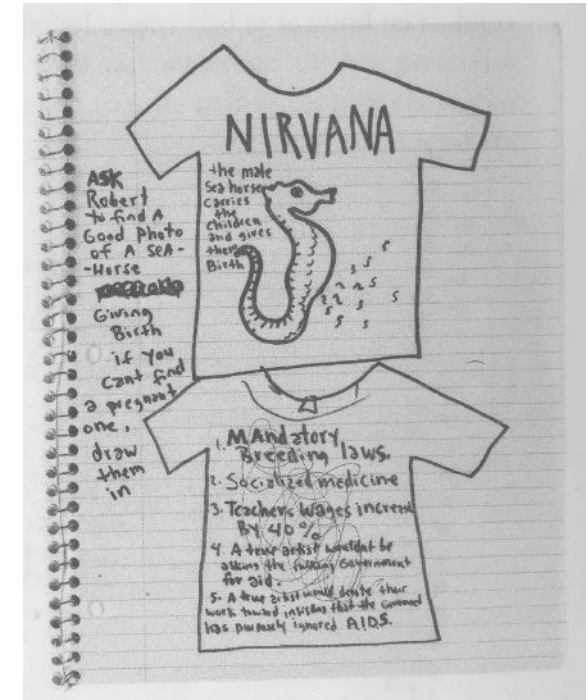 NIRVANA
the male
Sea horse
Carries
the
children
and gives
them
Birth
ASK
Robert
to find A
Good Photo
of A SEA-
-Horse
Giving
Birth
if you
cant find
a pregnant
one,
draw
them
in
1. MANdatory
Breeding laws.
2. Socialized medicine
3. Teachers Wages increase
By 40%
4. A true artist wouldnt be
asking the fucking Government
for aid.
5. A true artist would devote their
work toward insisting that the Government
has purposely ignored A.I.D.S.